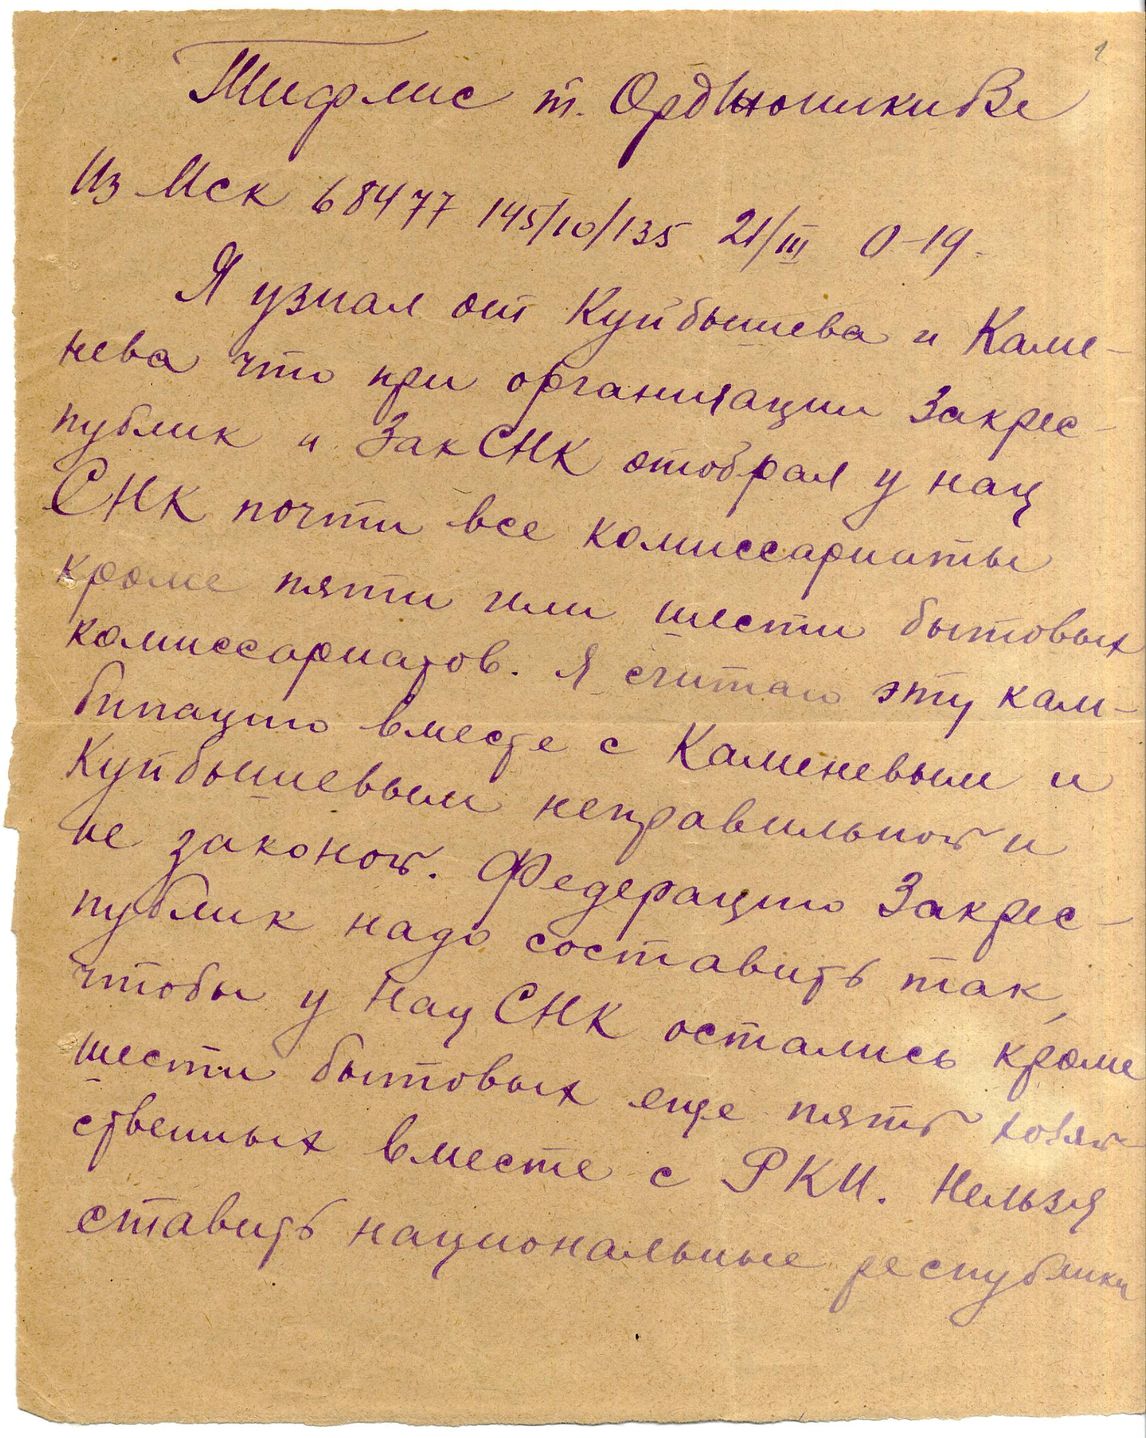 1
Тифлис т. Орджоникидзе
Из Мск 68477 145/10/135 21/III 0-19.
Я узнал от Куйбышева и Каме-
нева что при организации Закрес-
публик и ЗакСНК отобрал у нац
СНК почти все комиссариаты
кроме пяти или шести бытовых
комиссариатов. Я считаю эту ком-
бинацию вместе с Каменевым и
Куйбышевым неправильной и
не законой. Федерацию Закрес-
публик надо составить так,
чтобы у Нац СНК остались кроме
шести бытовых еще пять хозяй
ственных вместе с РКИ. Нельзя
ставить национальные республики